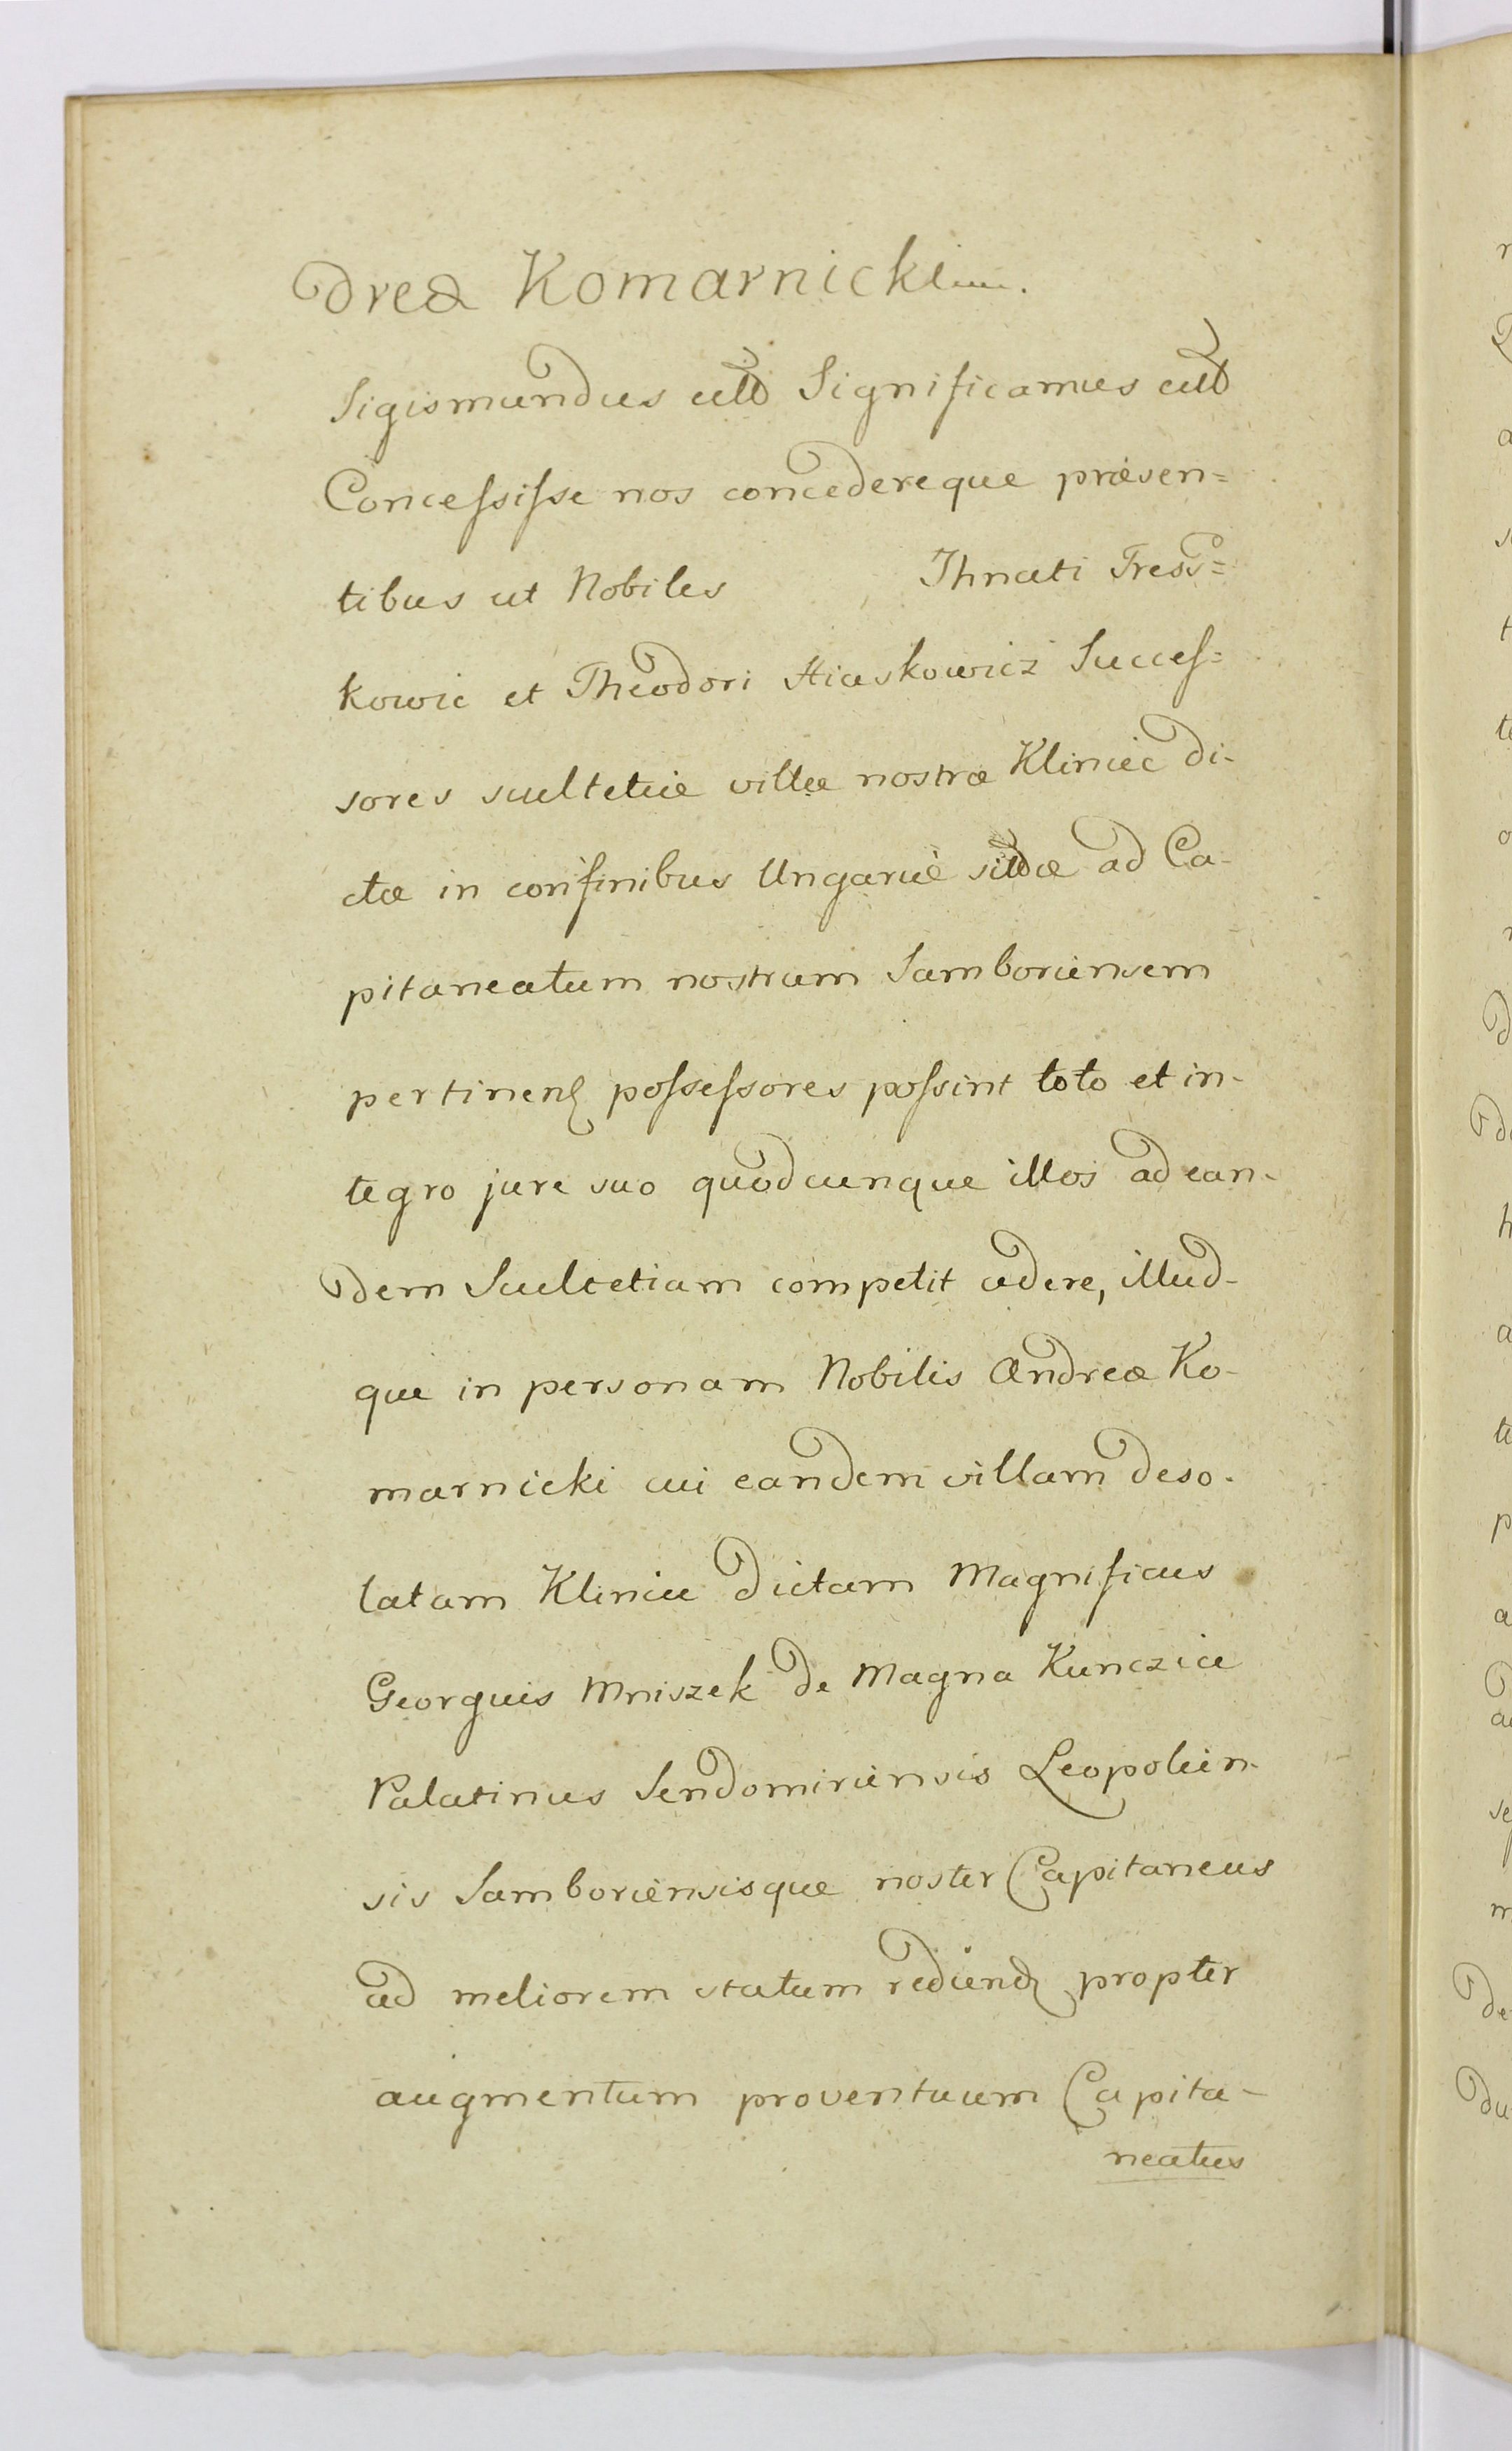 dreæ Komarnicki.
Sigismundus etc Significamus etc
Concessisse nos concedereque præsen=
tibus ut Nobiles Ihnati Tress=
kowic et Theodori Hiaskowicz Succes=
sores scultetiæ villæ nostræ Kliniec di-
ctæ in confinibus Ungariæ sitæ ad Ca-
pitaneatum nostrum Samboriensem
pertinen possessores possint toto et in-
tegro jure suo quodcunque illos ad ean-
dem Scultetiam competit cedere, illud-
que in personam Nobilis Andreæ Ko-
marnicki cui eandem villam deso-
latam Kliniec dictam Magnificus
Georgius Mniszek de Magna Kunczice
Palatinus Sendomiriensis Leopolien-
sis Samboriensisque noster Capitaneus
ad meliorem statum redigend propter
augmentum proventuum Capita-
neatus